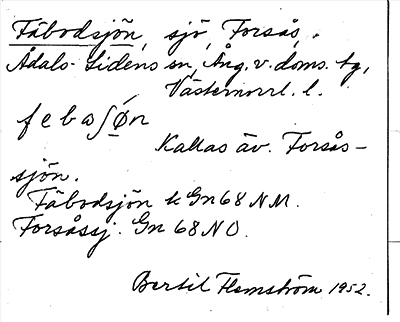 Fäbodsjön, sjö, Forsås,
Ådals-Lidens sn, Ång. v. doms. tg,
Västernorrl. l.
febaʃø̀n
Kallas äv. Forsås-
sjön.
Fäbodsjön k Gn 68 NM.
Forsåssj. Gn 68 NO.
Bertil Flemström 1952.